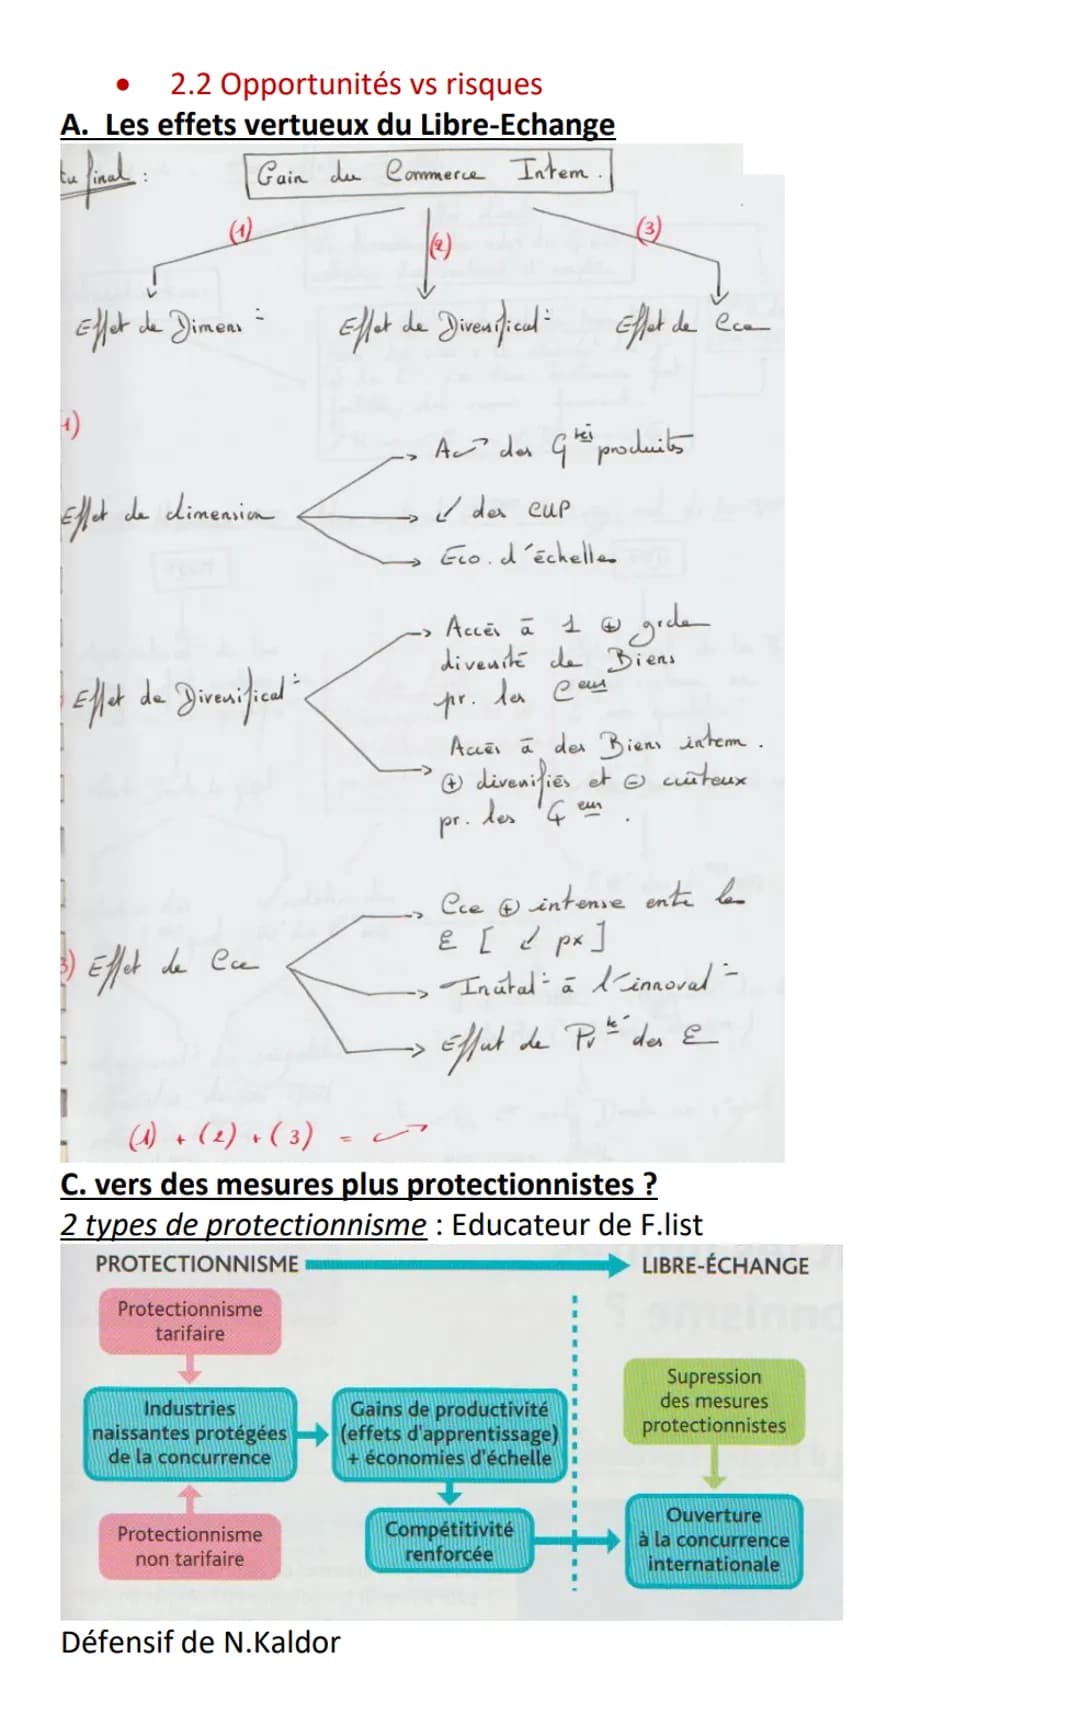 • 2.2 Opportunités vs risques
A. Les effets vertueux du Libre-Echange
final :
Gain du Commerce Intern.
(1)
(2)
(3)
Effet de Dimens°
Effet de Diversificat°
Effet de Cce
1)
Effet de dimension
des Gtés produits
↙ des CUP
Eco. d'échelles
Effet de Diversificat°
Accès à 1 ⊕ grde
diversité de Biens
pr. les Ceurs
Accès à des Biens interm.
⊕ diversifiés et ⊖ coûteux
pr. les eurs.
3) Effet de Cce
Cce ⊕ intense entre les
E [ ↙ px ]
à l'innovat°
Effet de Pvté des E
(1) + (2) + (3) = ↗
C. vers des mesures plus protectionnistes ?
2 types de protectionnisme : Educateur de F.list
PROTECTIONNISME
LIBRE-ÉCHANGE
Protectionnisme
tarifaire
Industries
naissantes protégées
de la concurrence
Protectionnisme
non tarifaire
Gains de productivité
(effets d'apprentissage)
+ économies d'échelle
Compétitivité
renforcée
Supression
des mesures
protectionnistes
Ouverture
à la concurrence
internationale
Défensif de N.Kaldor